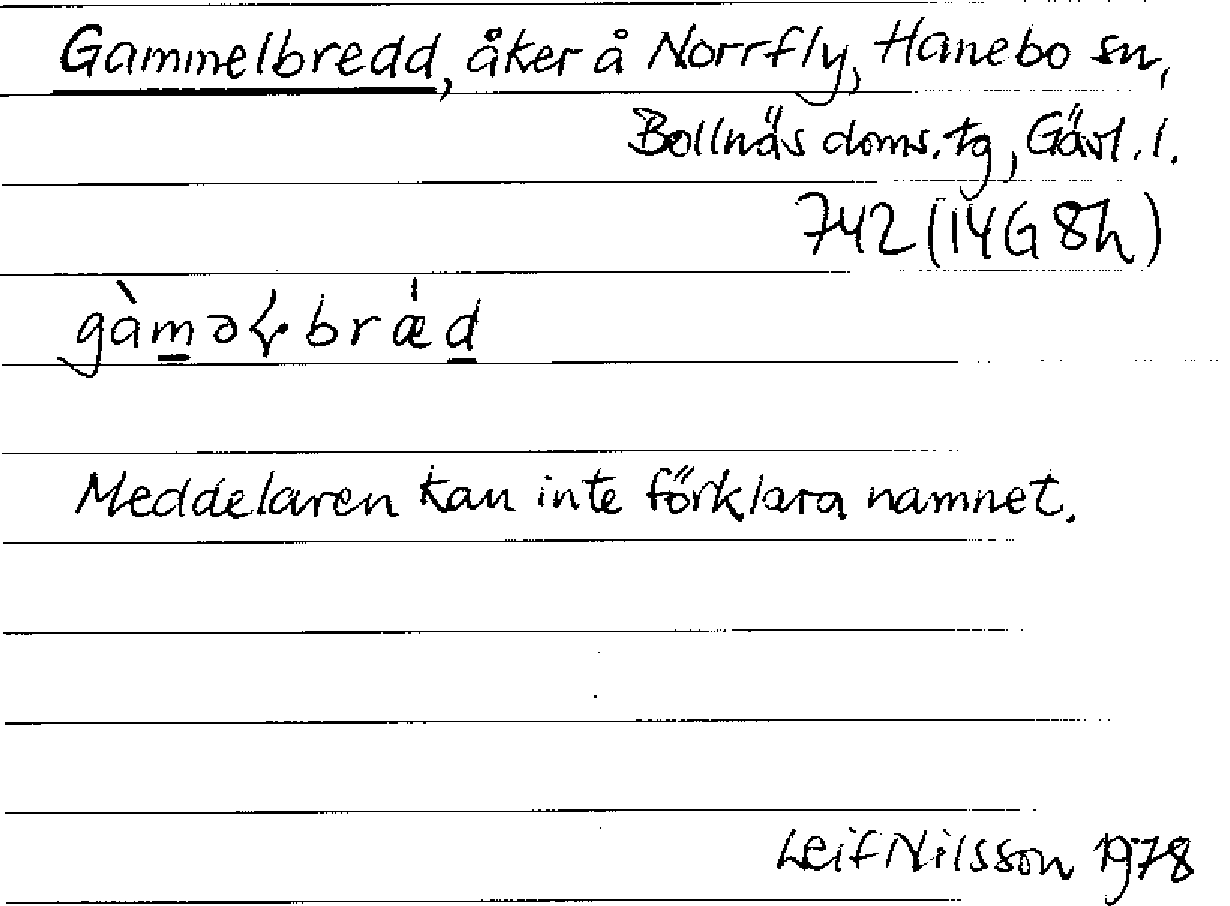 Gammelbredd, åker å Norrfly, Hanebo sn,
Bollnäs doms. tg, Gävl. l.
742 (14G 8h)
gàməɽbræ̍d
Meddelaren kan inte förklara namnet.
Leif Nilsson 1978